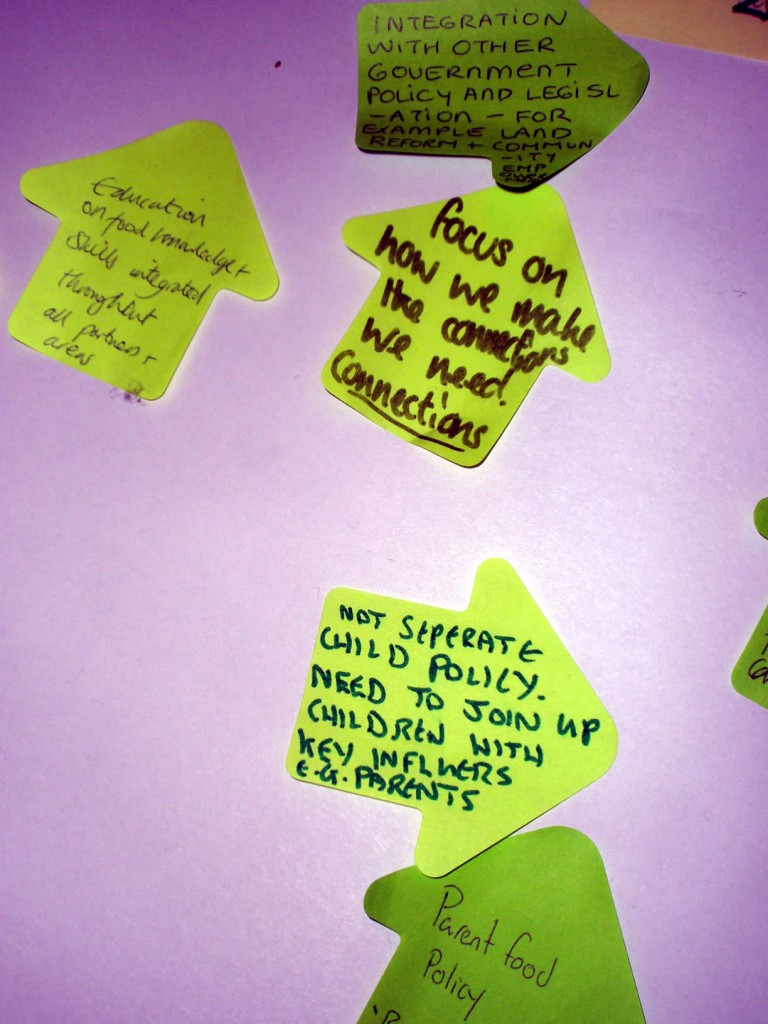 INTEGRATION
WITH OTHER
GOVERNMENT
POLICY AND LEGISL
-ATION - FOR
EXAMPLE LAND
REFORM + COMMUN
-ITY
EMP
Education
on food knowledge +
skills integrated
throughout
all partners +
areas
focus on
how we make
the connections
we need!
Connections
NOT SEPERATE
CHILD POLICY.
NEED TO JOIN UP
CHILDREN WITH
KEY INFLUERS
E.G. PARENTS
Parent food
Policy